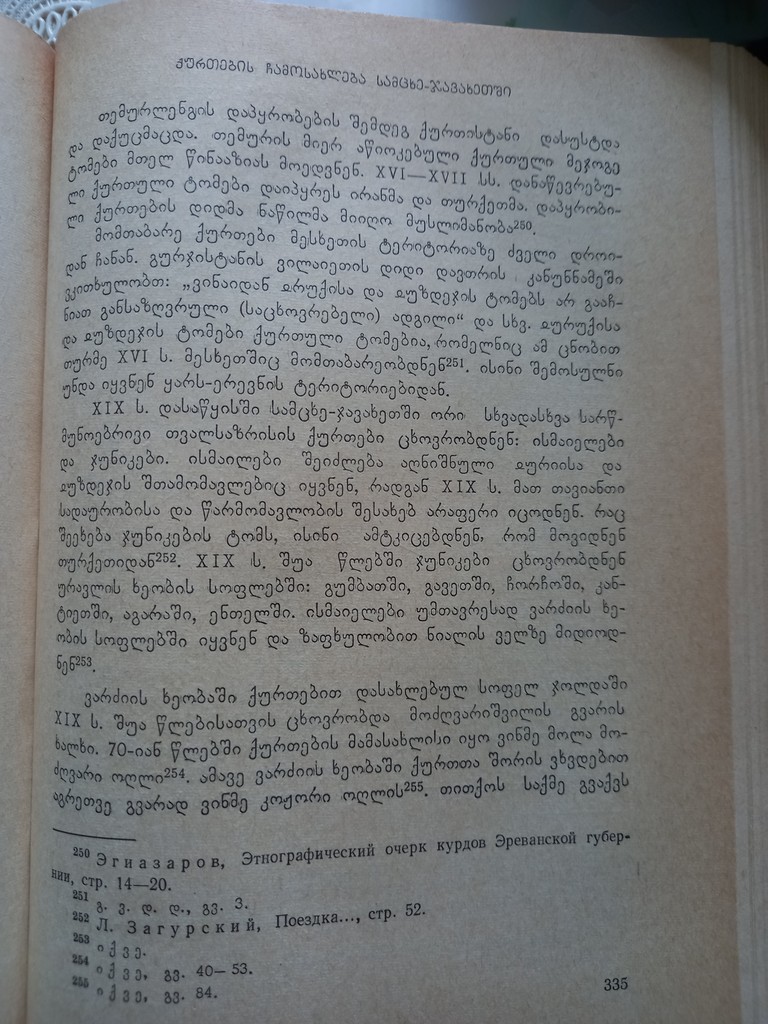 ᲥᲣᲠᲗᲔᲑᲘᲡ ᲩᲐᲛᲝᲡᲐᲮᲚᲔᲑᲐ ᲡᲐᲛᲪᲮᲔ-ᲯᲐᲕᲐᲮᲔᲗᲨᲘ
თემურლენგის დაპყრობების შემდეგ ქურთისტანი დასუსტდა
და დაქუცმაცდა. თემურის მიერ აწიოკებული ქურთული მეჯოგე
ტომები მთელ წინააზიას მოედვნენ. XVI—XVII სს. დანაწევრებუ-
ლი ქურთული ტომები დაიპყრეს ირანმა და თურქეთმა. დაპყრობი-
ლი ქურთების დიდმა ნაწილმა მიიღო მუსლიმანობა²⁵⁰.
მომთაბარე ქურთები მესხეთის ტერიტორიაზე ძველი დროი-
დან ჩანან. გურჯისტანის ვილაიეთის დიდი დავთრის კანუნნამეში
ვკითხულობთ: „ვინაიდან ჲრუქისა და ჲუზდეჯის ტომებს არ გააჩ-
ნიათ განსაზღვრული (საცხოვრებელი) ადგილი“ და სხვ. ჲურუქისა
და ჲუზდეჯის ტომები ქურთული ტომებია, რომელნიც ამ ცნობით
თურმე XVI ს. მესხეთშიც მომთაბარეობდნენ²⁵¹. ისინი შემოსულნი
უნდა იყვნენ ყარს-ერევნის ტერიტორიებიდან.
XIX ს. დასაწყისში სამცხე-ჯავახეთში ორი სხვადასხვა სარწ-
მუნოებრივი თვალსაზრისის ქურთები ცხოვრობდნენ: ისმაიელები
და ჯუნიკები. ისმაილები შეიძლება აღნიშნული ჲურიისა და
ჲუზდეჯის შთამომავლებიც იყვნენ, რადგან XIX ს. მათ თავიანთი
სადაურობისა და წარმომავლობის შესახებ არაფერი იცოდნენ. რაც
შეეხება ჯუნიკების ტომს, ისინი ამტკიცებდნენ, რომ მოვიდნენ
თურქეთიდან²⁵². XIX ს. შუა წლებში ჯუნიკები ცხოვრობდნენ
ურავლის ხეობის სოფლებში: გუმბათში, გავეთში, ჩორჩოში, კან-
ტიეთში, აგარაში, ენთელში. ისმაიელები უმთავრესად ვარძიის ხე-
ობის სოფლებში იყვნენ და ზაფხულობით ნიალის ველზე მიდიოდ-
ნენ²⁵³.
ვარძიის ხეობაში ქურთებით დასახლებულ სოფელ ჯოლდაში
XIX ს. შუა წლებისათვის ცხოვრობდა მოძღვარიშვილის გვარის
ხალხი. 70-იან წლებში ქურთების მამასახლისი იყო ვინმე მოლა მო-
ძღვარი ოღლი²⁵⁴. ამავე ვარძიის ხეობაში ქურთთა შორის ვხვდებით
აგრეთვე გვარად ვინმე კოჟორი ოღლის²⁵⁵. თითქოს საქმე გვაქვს
²⁵⁰ Эгиазаров, Этнографический очерк курдов Эреванской губер-
нии, стр. 14—20.
²⁵¹ გ. ვ. დ. დ., გვ. 3.
²⁵² Л. Загурский, Поездка..., стр. 52.
²⁵³ იქვე.
²⁵⁴ იქვე, გვ. 40—53.
²⁵⁵ იქვე, გვ. 84.
335